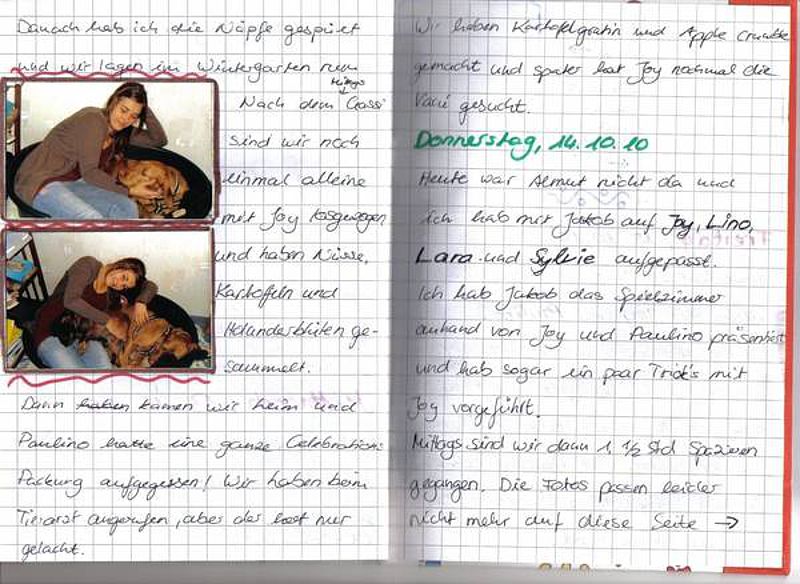 Danach hab ich die Näpfe gespült
und wir lagen im Wintergarten rum
Mittags
Nach dem Gassi
sind wir noch
einmal alleine
mit Joy losgezogen
und haben Nüsse,
Kartoffeln und
Holunderblüten ge-
sammelt.
Dann haben kamen wir heim und
Paulino hatte eine ganze Celebrations
Packung aufgegessen! Wir haben beim
Tierarzt angerufen, aber der hat nur
gelacht.
Wir haben Kartoffelgratin und Apple crumble
gemacht und später hat Joy nochmal die
Vani gesucht.
Donnerstag, 14.10.10
Heute war Almut nicht da und
ich hab mit Jakob auf Joy, Lino,
Lara und Sylvie aufgepasst.
Ich hab Jakob das Spielzimmer
anhand von Joy und Paulino präsentiert
und hab sogar ein paar Trick's mit
Joy vorgeführt.
Mittags sind wir dann 1 1/2 Std spazieren
gegangen. Die Fotos passen leider
nicht mehr auf diese Seite →